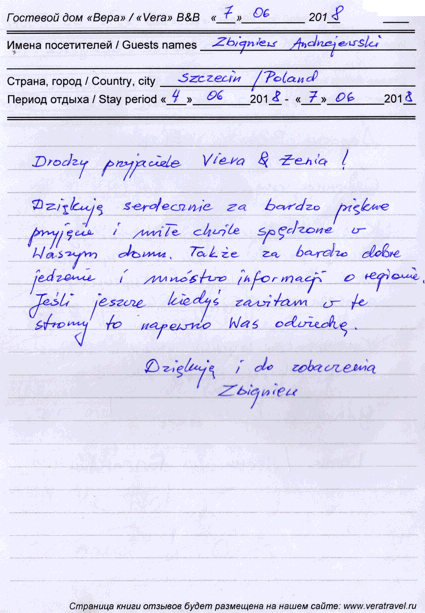 Гостевой дом «Вера» / «Vera» B&B « 7 » 06 2018
Имена посетителей / Guests names Zbigniew Andrzejewski
Страна, город / Country, city Szczecin / Poland
Период отдыха / Stay period « 4 » 06 2018 - « 7 » 06 2018
Drodzy przyjaciele Viera & Żenia !
Dziękuję serdecznie za bardzo piękne
przyjęcie i miłe chwile spędzone w
Waszym domu. Także za bardzo dobre
jedzenie i mnóstwo informacji o regionie.
Jeśli jeszcze kiedyś zawitam w te
strony to napewno Was odwiedzę.
Dziękuję i do zobaczenia
Zbigniew
Страница книги отзывов будет размещена на нашем сайте: www.veratravel.ru